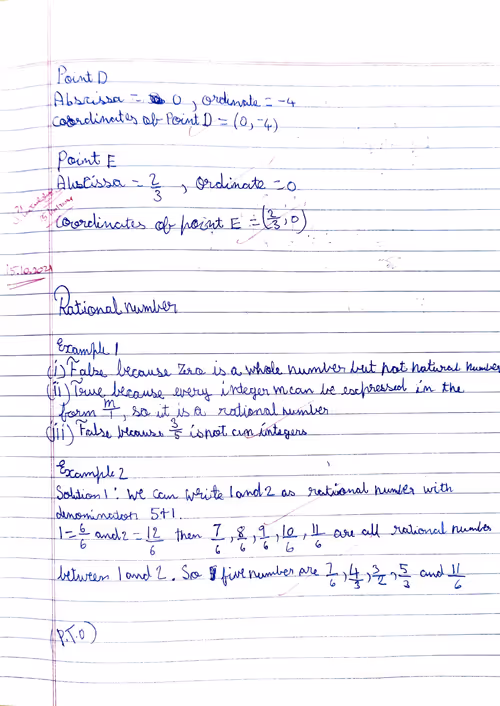 Point D
Abscissa = 0, ordinate = -4
coordinates of Point D = (0, -4)
Point E
Abscissa = 2/3, ordinate = 0
coordinates of point E = (2/3, 0)
15.10.2021
Rational number
Example 1
(i) False because zro is a whole number but not natural number
(ii) True because every integer m can be expressed in the
form m/1, so it is a rational number
(iii) False because 3/5 is not an integers
Example 2
Solution 1: We can write 1 and 2 as rational number with
denominator 5+1.
1 = 6/6 and 2 = 12/6 then 7/6, 8/6, 9/6, 10/6, 11/6 are all rational number
between 1 and 2. So five number are 7/6, 4/3, 3/2, 5/3 and 11/6
(P.T.O)